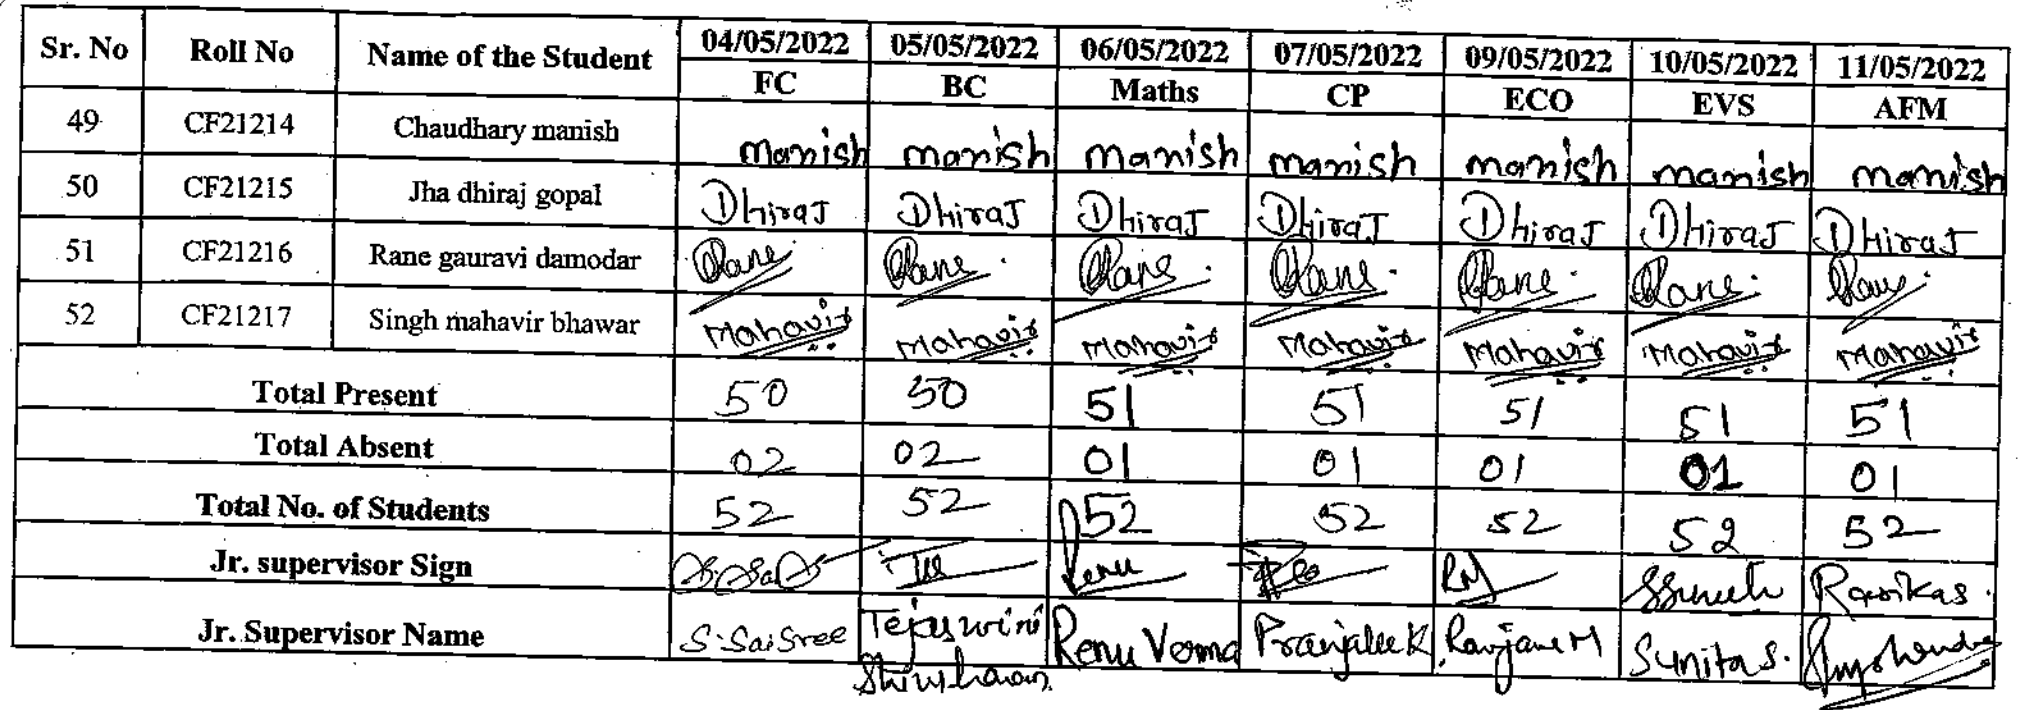 Sr. No Roll No Name of the Student 04/05/2022 05/05/2022 06/05/2022 07/05/2022 09/05/2022 10/05/2022 11/05/2022
FC BC Maths CP ECO EVS AFM
49 CF21214 Chaudhary manish manish manish manish manish manish manish manish
50 CF21215 Jha dhiraj gopal DhiraJ DhiraJ DhiraJ DhiraJ DhiraJ DhiraJ DhiraJ
51 CF21216 Rane gauravi damodar Rane Rane Rane Rane Rane Rane Rane
52 CF21217 Singh mahavir bhawar Mahavir Mahavir Mahavir Mahavir Mahavir Mahavir Mahavir
Total Present 50 50 51 51 51 51 51
Total Absent 02 02 01 01 01 01 01
Total No. of Students 52 52 52 52 52 52 52
Jr. supervisor Sign Renu
Jr. Supervisor Name S. Sai Sree Tejaswini Renu Verma Pranjalee K Ranjane M Sunita S.